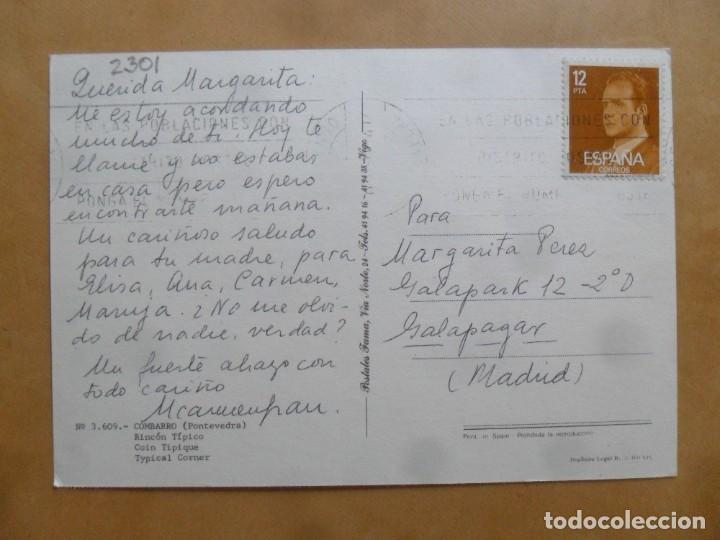 2301
Querida Margarita:
Me estoy acordando
mucho de ti. Hoy te
llamé y no estabas
en casa pero espero
encontrarte mañana.
Un cariñoso saludo
para tu madre, para
Elisa, Ana, Carmen,
Maruja. ¿No me olvi-
do de nadie, verdad?
Un fuerte abrazo con
todo cariño
Nº 3.609.- COMBARRO (Pontevedra)
Rincón Típico
Coin Tipique
Typical Corner
EN LAS POBLACIONES CON
PONGA EL
Postales Fama, Vía Norte, 24 - Tels. 41 94 16 - 41 94 35 - Vigo
12
PTA
ESPAÑA
CORREOS
EN LAS POBLACIONES CON
DISTRITO
PONGA EL
Para
Margarita Perez
Galapark 12 - 2º D
Galapagar
(Madrid)
Print. in Spain - Prohibida la reproducción
Depósito Legal B.
todocoleccion
todocoleccion.net